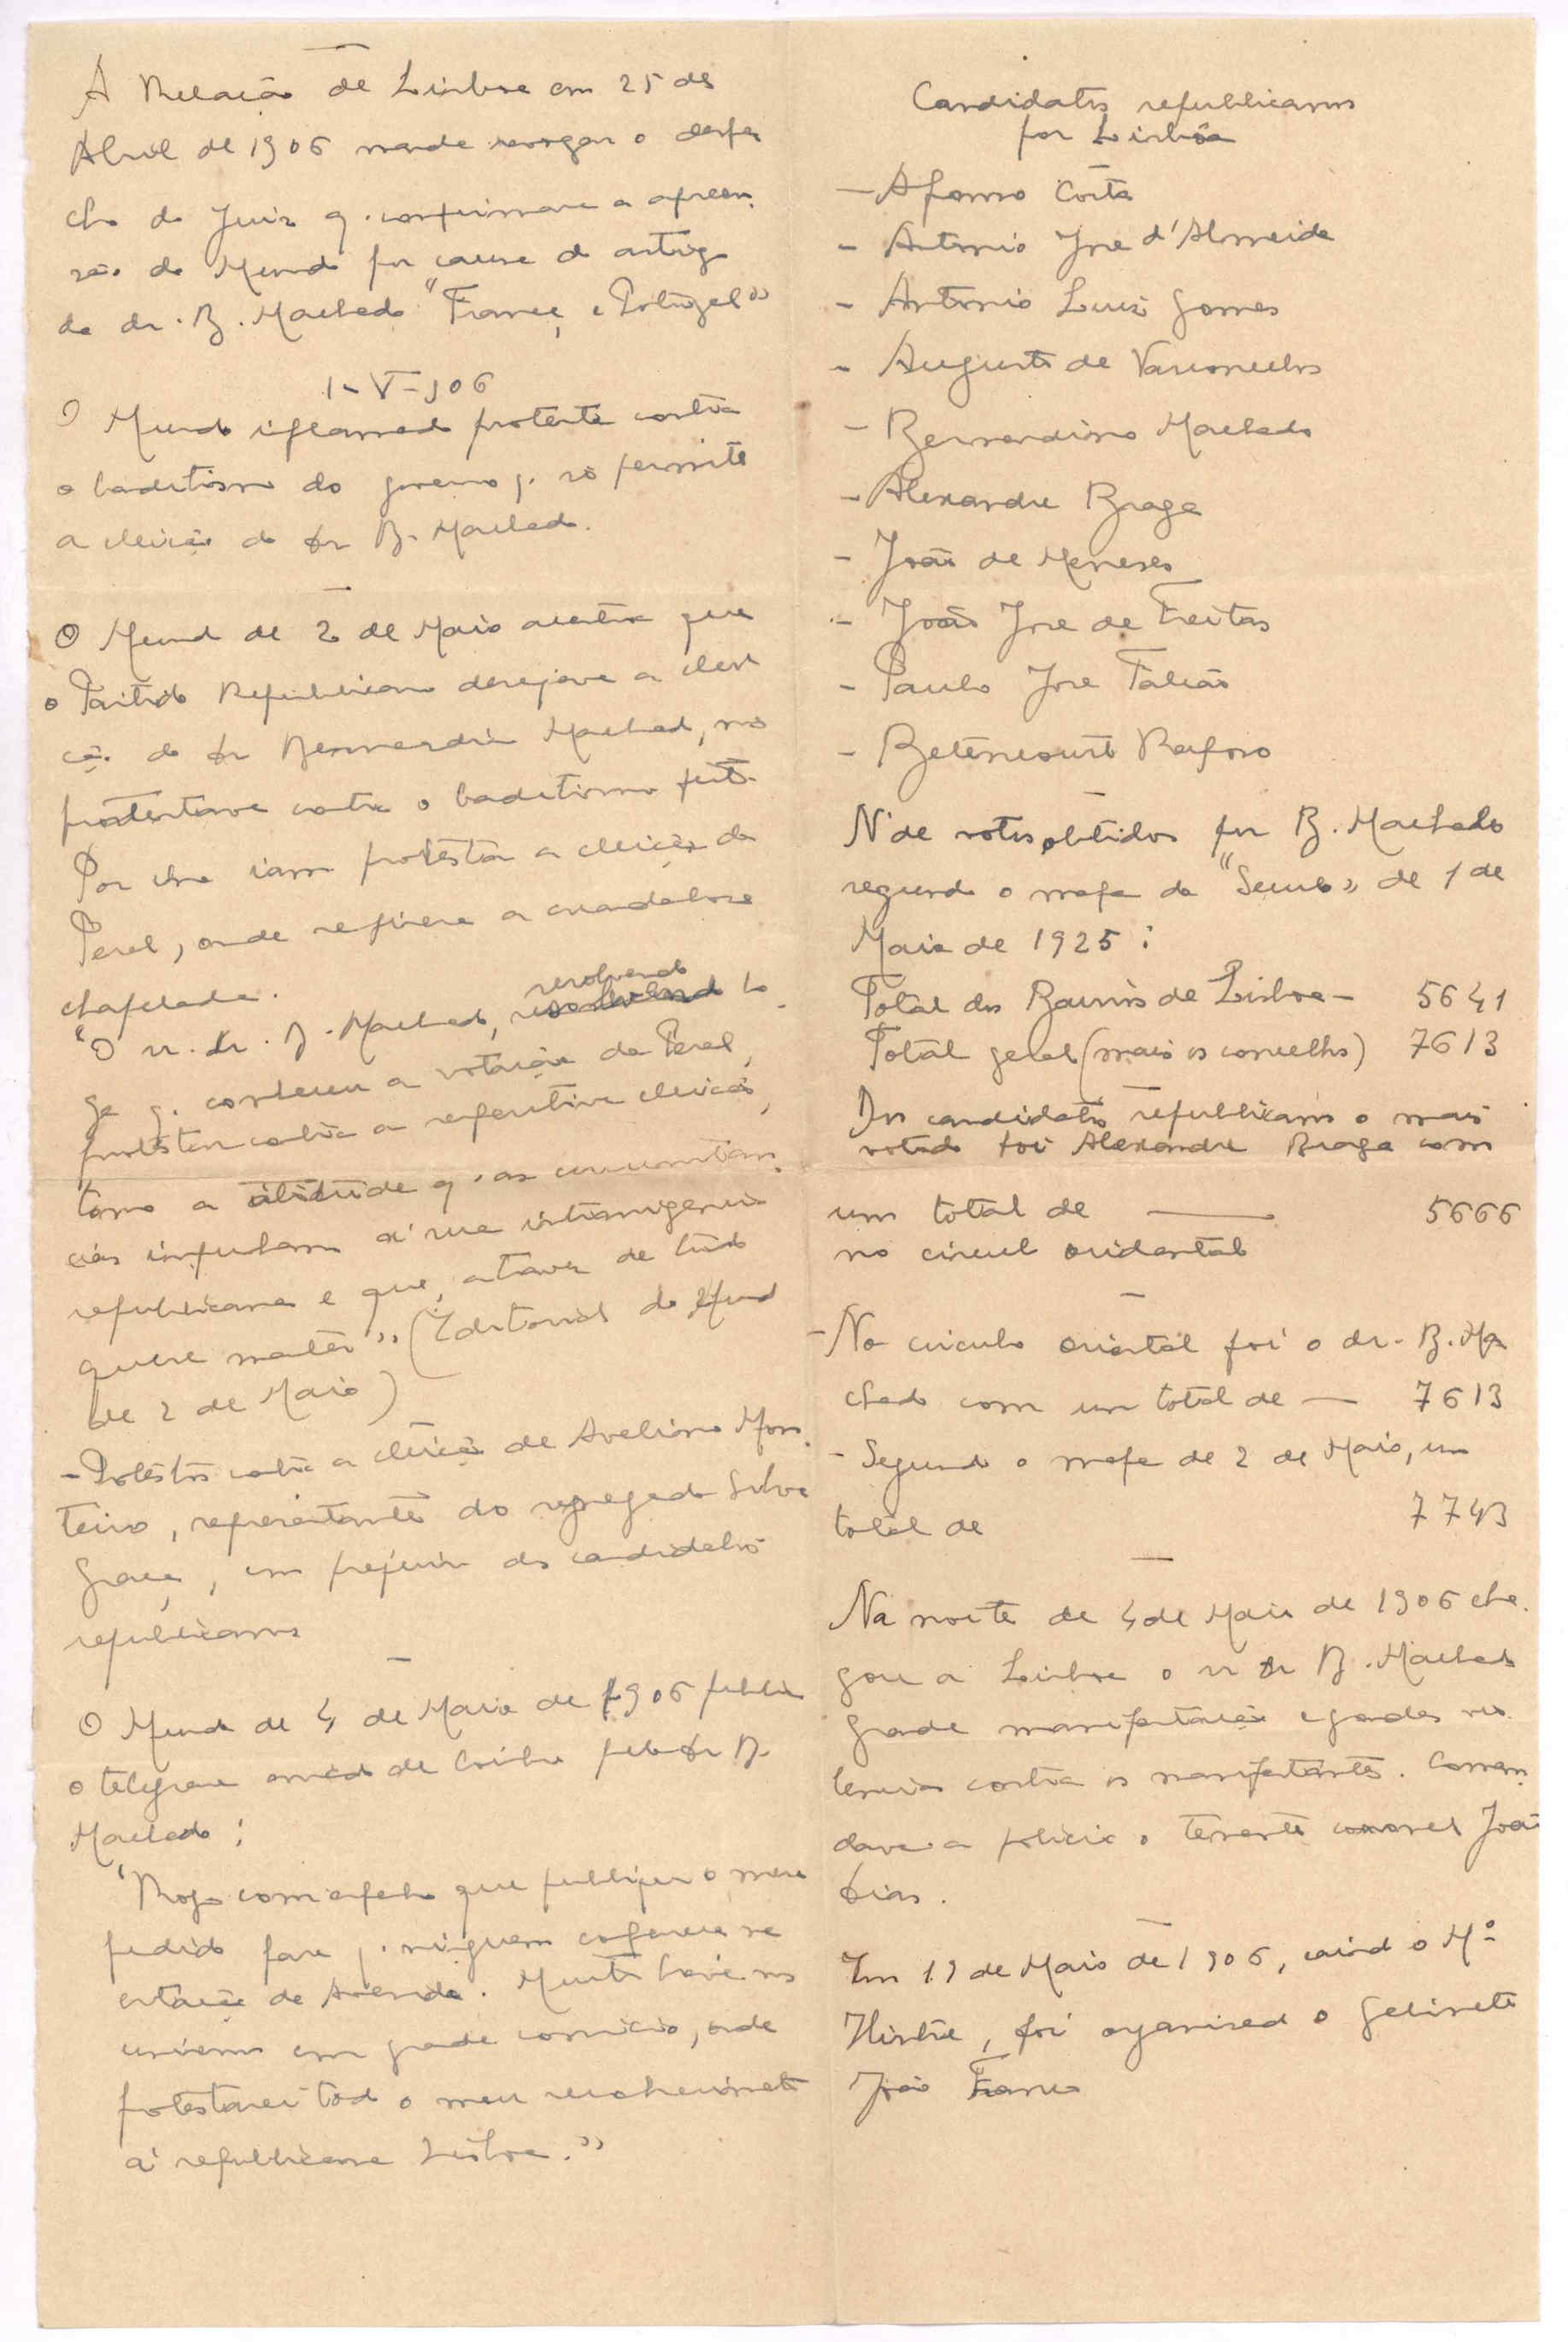 A Relação de Lisboa em 25 de
Abril de 1906 manda revogar o despa
cho do Juiz q. confirmara a apreen-
são do Mundo por causa do artigo
do dr. B. Machado "França e Portugal"
1-V-906
O Mundo inflamado protesta contra
o banditismo do governo q. só permite
a eleição do dr B. Machado.
O Mundo de 2 de Maio acentua que
o Partido Republicano desejava a elei
ção do dr Bernardino Machado, mas
protestava contra o banditismo feito.
Por isso iam protestar a eleição do
Peral, onde se fizera a escandalosa
chapelada.
"O sr. dr. B. Machado, resolvendo lo
go q. conheceu a votação do Peral,
protestar contra a respectiva eleição,
toma a atitude q. as circunstan-
cias impunham á sua intransigencia
republicana e que, atravez de tudo
quere manter" (Editorial do Mundo
de 2 de Maio)
- Protestos contra a eleição de Avelino Mon-
teiro, representante do renegado Silva
Graça, em prejuizo dos candidatos
republicanos
O Mundo de 4 de Maio de 1906 publica
o telegrama enviado de Coimbra pelo dr B.
Machado:
"Rogo com empenho que publique o meu
pedido para q. ninguem compareça na
estação da Avenida. Muito breve nos
uniremos em grande comicio, onde
protestarei todo o meu reconhecimento
á republicana Lisboa."
Candidatos republicanos
por Lisbôa
- Afonso Costa
- Antonio Jose d'Almeida
- Antonio Luis Gomes
- Augusto de Vasconcelos
- Bernardino Machado
- Alexandre Braga
- João de Meneses
- João Jose de Freitas
- Paulo Jose Falcão
- Betencourt Raposo
Nº de votos obtidos por B. Machado
segundo o mapa do "Seculo" de 1 de
Maio de 1925:
Total dos Bairros de Lisboa - 5641
Total geral (mais os concelhos) 7613
Dos candidatos republicanos o mais
votado foi Alexandre Braga com
um total de — 5666
no circulo ocidental
- No circulo oriental foi o dr. B. Ma
chado com um total de — 7613
- Segundo o mapa de 2 de Maio, um
total de 7743
Na noite de 4 de Maio de 1906 che-
gou a Lisboa o sr dr B. Machado
grande manifestação e grandes vio
lencias contra os manifestantes. Coman-
dava a policia o tenente coronel João
Dias.
Em 19 de Maio de 1906, caindo o Mº
Hintze, foi organisado o gabinete
João Franco